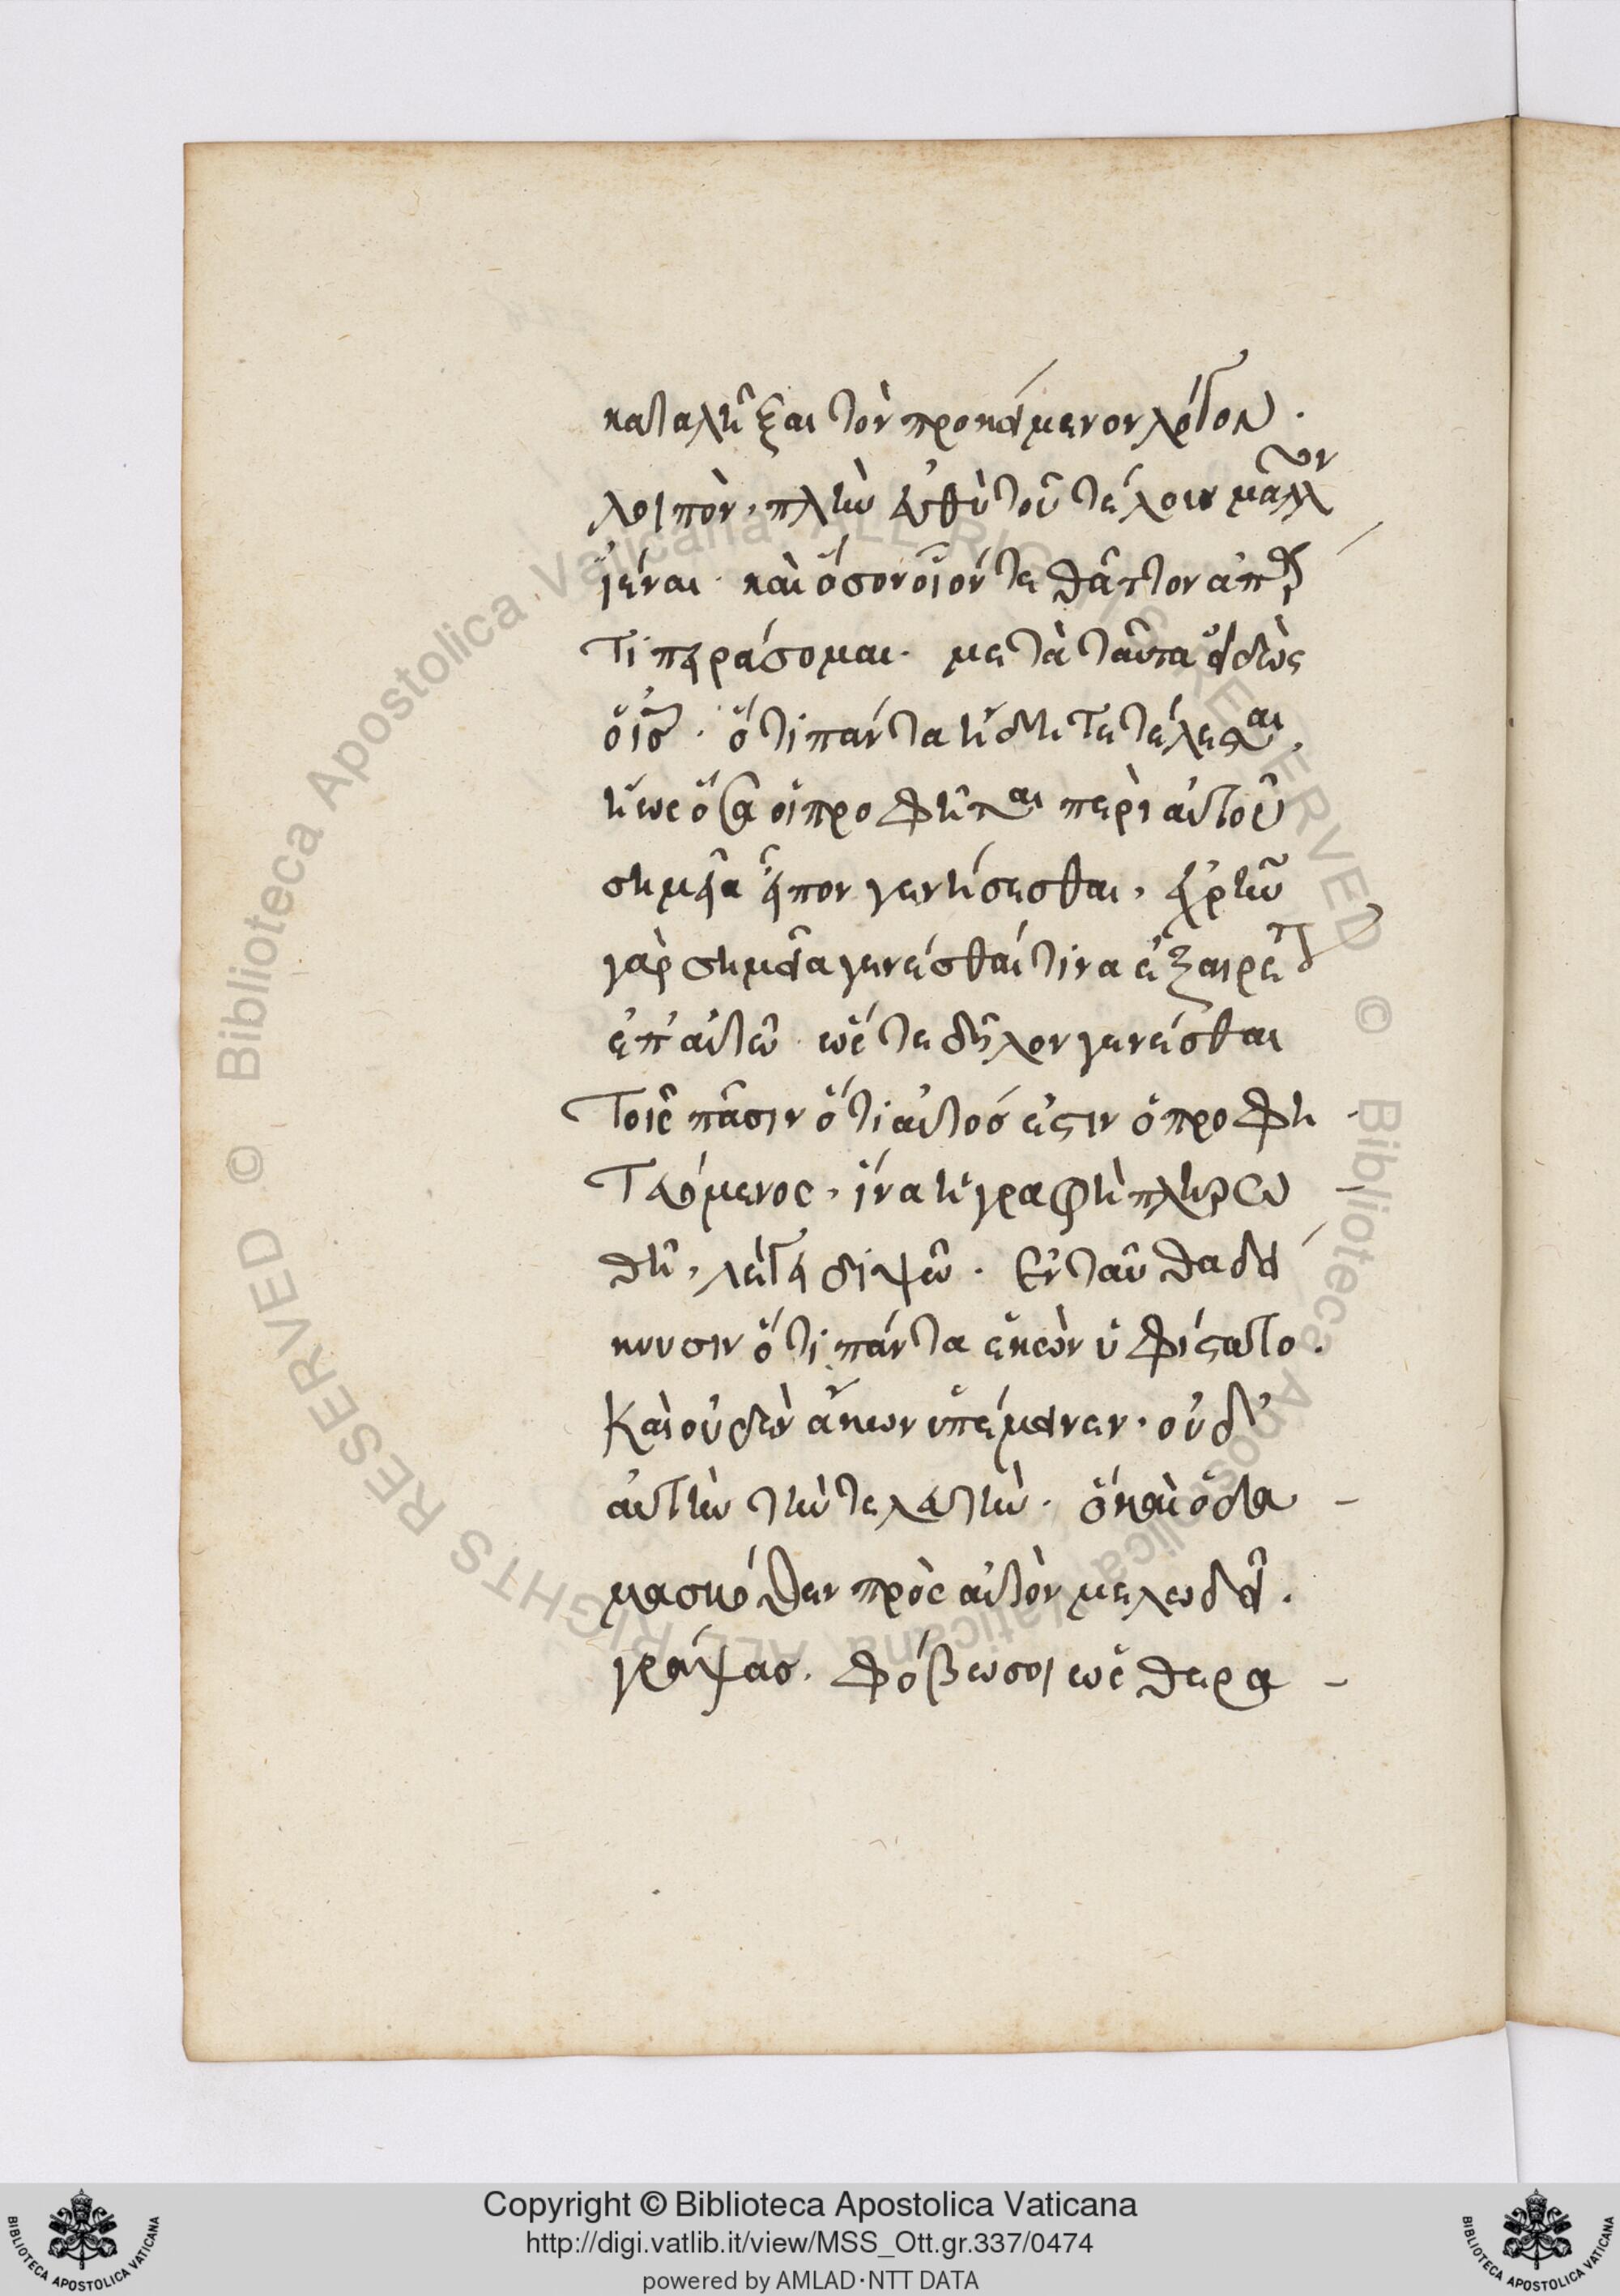 καταλῆξαι τὸν προκείμενον λόγον.
λοιπὸν, πλὴν εὐθὺ τοῦ τέλους μᾶλλον
ἰέναι. καὶ ὅσον οἷόν τε θᾶττον ἀπαρ
τι πειράσομαι. μετὰ ταῦτα εἰδὼς
ὁ ἰς. ὅτι πάντα ἤδη τετέλεσται,
ἤως ὅσα οἱ προφῆται περὶ αὐτοῦ
σημεῖα εἶπον γενήσεσθαι, χρὴν
γὰρ σημεῖα γενέσθαί τινα ἐξαίρετα
ἐπ' αὐτῶ ὥστε δῆλον γενέσθαι
τοῖς πᾶσιν ὅτι αὐτός ἐστιν ὁ προφη
τευόμενος, ἵνα ἡ γραφὴ πληρω
θῆ, λέγει διψῶ. Ἐνταῦθα δεί
κνυσιν ὅτι πάντα ἑκὼν ὑφίστατο.
Καὶ οὐδὲν ἄκων ὑπέμεινεν. οὐδ'
αὐτὴν τὴν τελευτὴν. ὃ καὶ ὁ δα
μασκόθεν πρὸς αὐτὸν μελωδεῖ.
γράψας. φόβω σοι ὡς θερα
Copyright © Biblioteca Apostolica Vaticana
http://digi.vatlib.it/view/MSS_Ott.gr.337/0474
powered by AMLAD·NTT DATA